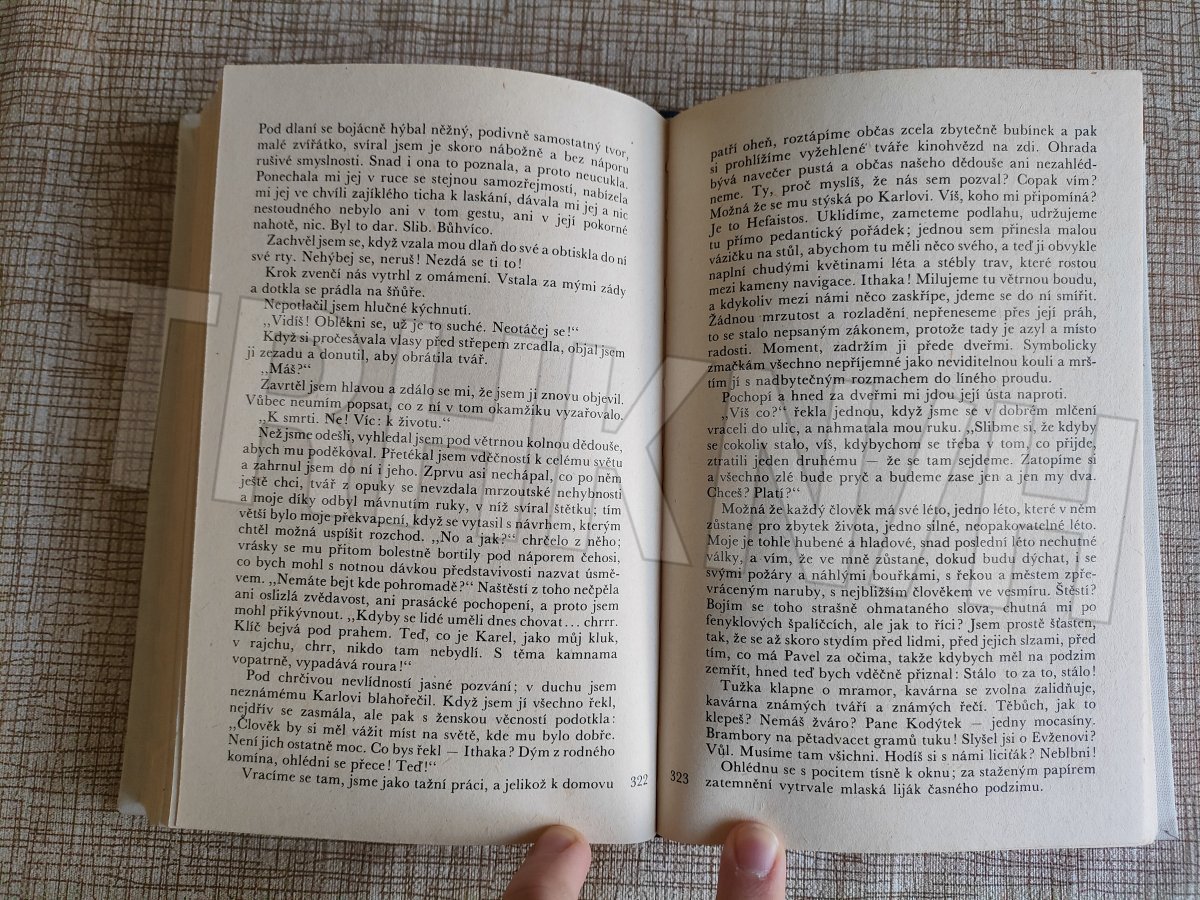 Pod dlaní se bojácně hýbal něžný, podivně samostatný tvor,
malé zvířátko, svíral jsem je skoro nábožně a bez náporu
rušivé smyslnosti. Snad i ona to poznala, a proto neucukla.
Ponechala mi jej v ruce se stejnou samozřejmostí, nabízela
mi jej ve chvíli zajíklého ticha k laskání, dávala mi jej a nic
nestoudného nebylo ani v tom gestu, ani v její pokorné
nahotě, nic. Byl to dar. Slib. Bůhvíco.
Zachvěl jsem se, když vzala mou dlaň do své a obtiskla do ní
své rty. Nehýbej se, neruš! Nezdá se ti to!
Krok zvenčí nás vytrhl z omámení. Vstala za mými zády
a dotkla se prádla na šňůře.
Nepotlačil jsem hlučné kýchnutí.
„Vidíš! Oblékni se, už je to suché. Neotáčej se!“
Když si pročesávala vlasy před střepem zrcadla, objal jsem
ji zezadu a donutil, aby obrátila tvář.
„Máš?“
Zavrtěl jsem hlavou a zdálo se mi, že jsem ji znovu objevil.
Vůbec neumím popsat, co z ní v tom okamžiku vyzařovalo.
„K smrti. Ne! Víc: k životu.“
Než jsme odešli, vyhledal jsem pod větrnou kolnou dědouše,
abych mu poděkoval. Přetékal jsem vděčností k celému světu
a zahrnul jsem do ní i jeho. Zprvu asi nechápal, co po něm
ještě chci, tvář z opuky se nevzdala mrzoutské nehybnosti
a moje díky odbyl mávnutím ruky, v níž svíral štětku; tím
větší bylo moje překvapení, když se vytasil s návrhem, kterým
chtěl možná uspíšit rozchod. „No a jak?“ chrčelo z něho;
vrásky se mu přitom bolestně bortily pod náporem čehosi,
co bych mohl s notnou dávkou představivosti nazvat úsmě-
vem. „Nemáte bejt kde pohromadě?“ Naštěstí z toho nečpěla
ani oslizlá zvědavost, ani prasácké pochopení, a proto jsem
mohl přikývnout. „Kdyby se lidé uměli dnes chovat... chrrr.
Klíč bejvá pod prahem. Teď, co je Karel, jako můj kluk,
v rajchu, chrr, nikdo tam nebydlí. S těma kamnama
vopatrně, vypadává roura!“
Pod chrčivou nevlídností jasné pozvání; v duchu jsem
neznámému Karlovi blahořečil. Když jsem jí všechno řekl,
nejdřív se zasmála, ale pak s ženskou věcností podotkla:
„Člověk by si měl vážit míst na světě, kde mu bylo dobře.
Není jich ostatně moc. Co bys řekl — Ithaka? Dým z rodného
komína, ohlédni se přece! Teď!“
Vracíme se tam, jsme jako tažní práci, a jelikož k domovu
322
patří oheň, roztápíme občas zcela zbytečně bubínek a pak
si prohlížíme vyžehlené tváře kinohvězd na zdi. Ohrada
bývá navečer pustá a občas našeho dědouše ani nezahléd-
neme. Ty, proč myslíš, že nás sem pozval? Copak vím?
Možná že se mu stýská po Karlovi. Víš, koho mi připomíná?
Je to Hefaistos. Uklidíme, zameteme podlahu, udržujeme
tu přímo pedantický pořádek; jednou sem přinesla malou
vázičku na stůl, abychom tu měli něco svého, a teď ji obvykle
naplní chudými květinami léta a stébly trav, které rostou
mezi kameny navigace. Ithaka! Milujeme tu větrnou boudu,
a kdykoliv mezi námi něco zaskřípe, jdeme se do ní smířit.
Žádnou mrzutost a rozladění nepřeneseme přes její práh,
to se stalo nepsaným zákonem, protože tady je azyl a místo
radosti. Moment, zadržím ji přede dveřmi. Symbolicky
zmačkám všechno nepříjemné jako neviditelnou kouli a mrš-
tím jí s nadbytečným rozmachem do líného proudu.
Pochopí a hned za dveřmi mi jdou její ústa naproti.
„Víš co?“ řekla jednou, když jsme se v dobrém mlčení
vraceli do ulic, a nahmatala mou ruku. „Slibme si, že kdyby
se cokoliv stalo, víš, kdybychom se třeba v tom, co přijde,
ztratili jeden druhému — že se tam sejdeme. Zatopíme si
a všechno zlé bude pryč a budeme zase jen a jen my dva.
Chceš? Platí?“
Možná že každý člověk má své léto, jedno léto, které v něm
zůstane pro zbytek života, jedno silné, neopakovatelné léto.
Moje je tohle hubené a hladové, snad poslední léto nechutné
války, a vím, že ve mně zůstane, dokud budu dýchat, i se
svými požáry a náhlými bouřkami, s řekou a městem zpře-
vráceným naruby, s nejbližším člověkem ve vesmíru. Štěstí?
Bojím se toho strašně ohmataného slova, chutná mi po
fenyklových špalíčcích, ale jak to říci? Jsem prostě šťasten,
tak, že se až skoro stydím před lidmi, před jejich slzami, před
tím, co má Pavel za očima, takže kdybych měl na podzim
zemřít, hned teď bych vděčně přiznal: Stálo to za to, stálo!
Tužka klapne o mramor, kavárna se zvolna zalidňuje,
kavárna známých tváří a známých řečí. Těbůch, jak to
klepeš? Nemáš žváro? Pane Kodýtek — jedny mocasíny.
Brambory na pětadvacet gramů tuku! Slyšel jsi o Evženovi?
Vůl. Musíme tam všichni. Hodíš si s námi liciťák? Neblbni!
Ohlédnu se s pocitem tísně k oknu; za staženým papírem
zatemnění vytrvale mlaská liják časného podzimu.
323